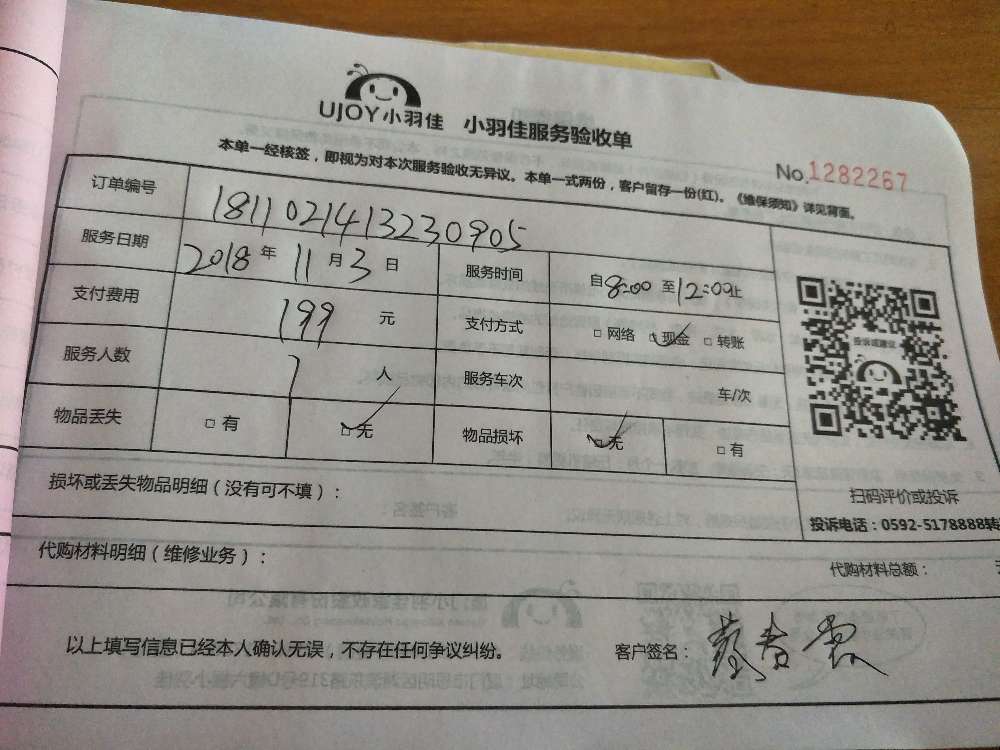 UJOY小羽佳 小羽佳服务验收单
No.1282267
本单一经核签，即视为对本次服务验收无异议。本单一式两份，客户留存一份(红)。《维保须知》详见背面。
订单编号 181102141323090​5
服务日期 2018年11月3日 服务时间 自8:00至12:00
支付费用 199元 支付方式 □网络 ☑现金 □转账
服务人数 1人 服务车次 车/次
物品丢失 □有 ☑无 物品损坏 ☑无 □有
投诉或建议
扫码评价或投诉
投诉电话：0592-5178888转
损坏或丢失物品明细（没有可不填）：
代购材料明细（维修业务）：
代购材料总额：
以上填写信息已经本人确认无误，不存在任何争议纠纷。 客户签名：